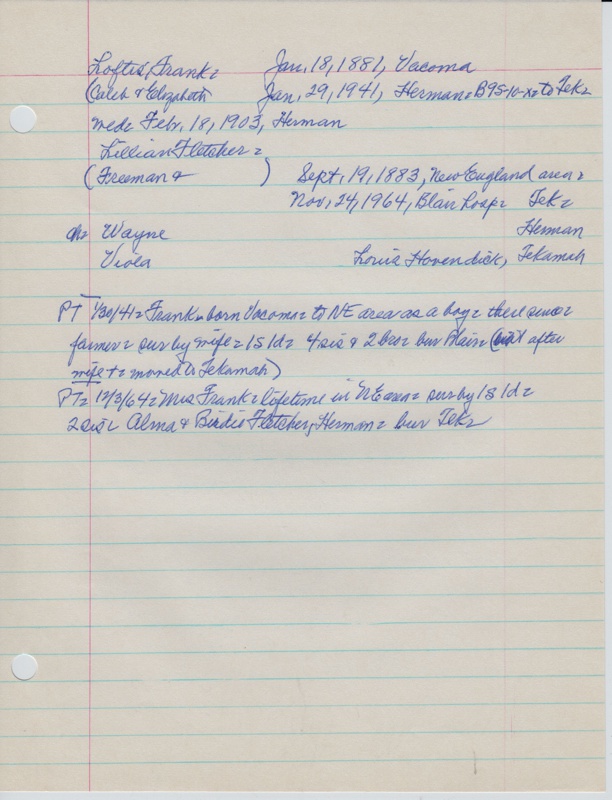 Loftis, Frank - Jan. 18, 1881, Vacoma
(Caleb & Elizabeth Jan. 29, 1941, Herman - B95-10-x- to Tek -
wed - Febr. 18, 1903, Herman
Lillian Fletcher -
(Freeman & ) Sept. 19, 1883, New England area -
Nov. 24, 1964, Blair hosp - Tek -
ch - Wayne Herman
Viola Louis Hovendick, Tekamah
PT 1/30/41 - Frank - born Vacoma - to NE area as a boy - there since -
farmer - sur by wife - 1s 1d - 4 sis & 2 bro - bur Blair - ( after
wife + - moved to Tekamah)
PT - 12/3/64 - Mrs Frank - lifetime in NE area - sur by 1s 1d -
2 sis - Alma & Birdie Fletcher, Herman - bur Tek -